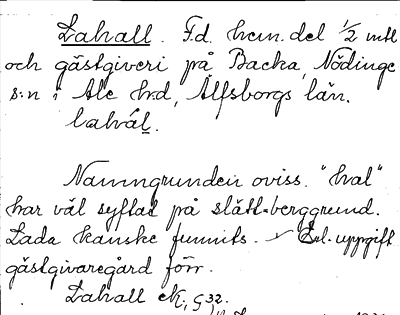 Lahall. F.d. hem.del 1/2 mtl
och gästgiveri på Backa, Nödinge
s:n i Ale hrd, Älfsborgs län.
lahväl.
Namngrunden oviss. "hal"
har väl syftat på slätt berggrund.
Lada kanske funnits. Enl. uppgift
gästgivaregård förr.
Lahall